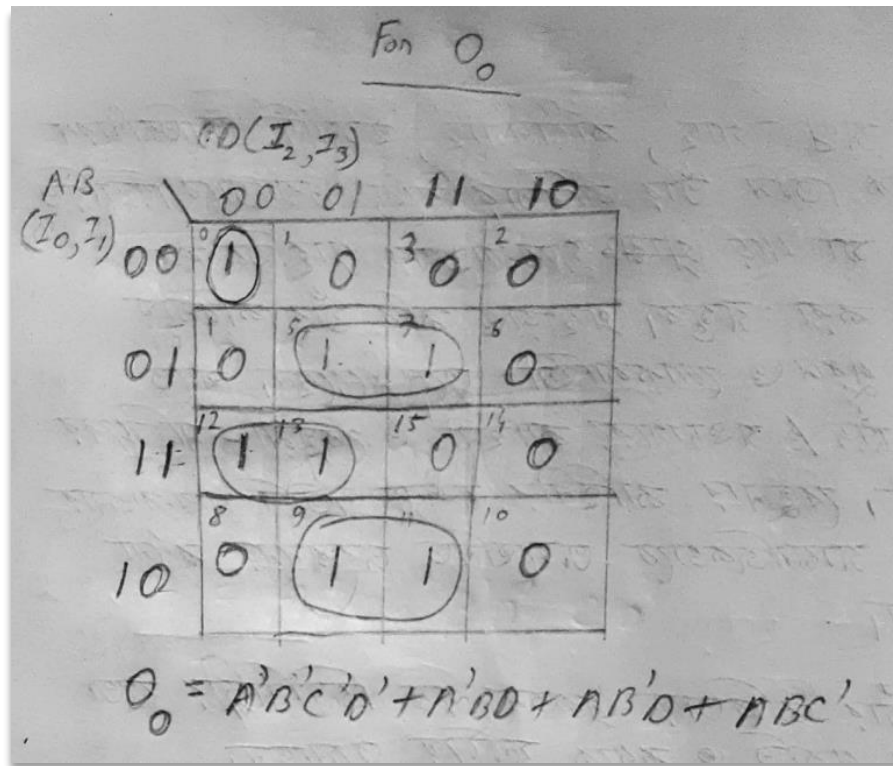 For O₀
CD(I₂,I₃)
AB
(I₀,I₁)
00 01 11 10
00 0 1 1 0 3 0 2 0
01 1 0 5 1 7 1 6 0
11 12 1 13 1 15 0 14 0
10 8 0 9 1 11 1 10 0
O₀ = A'B'C'D' + A'BD + AB'D + ABC'